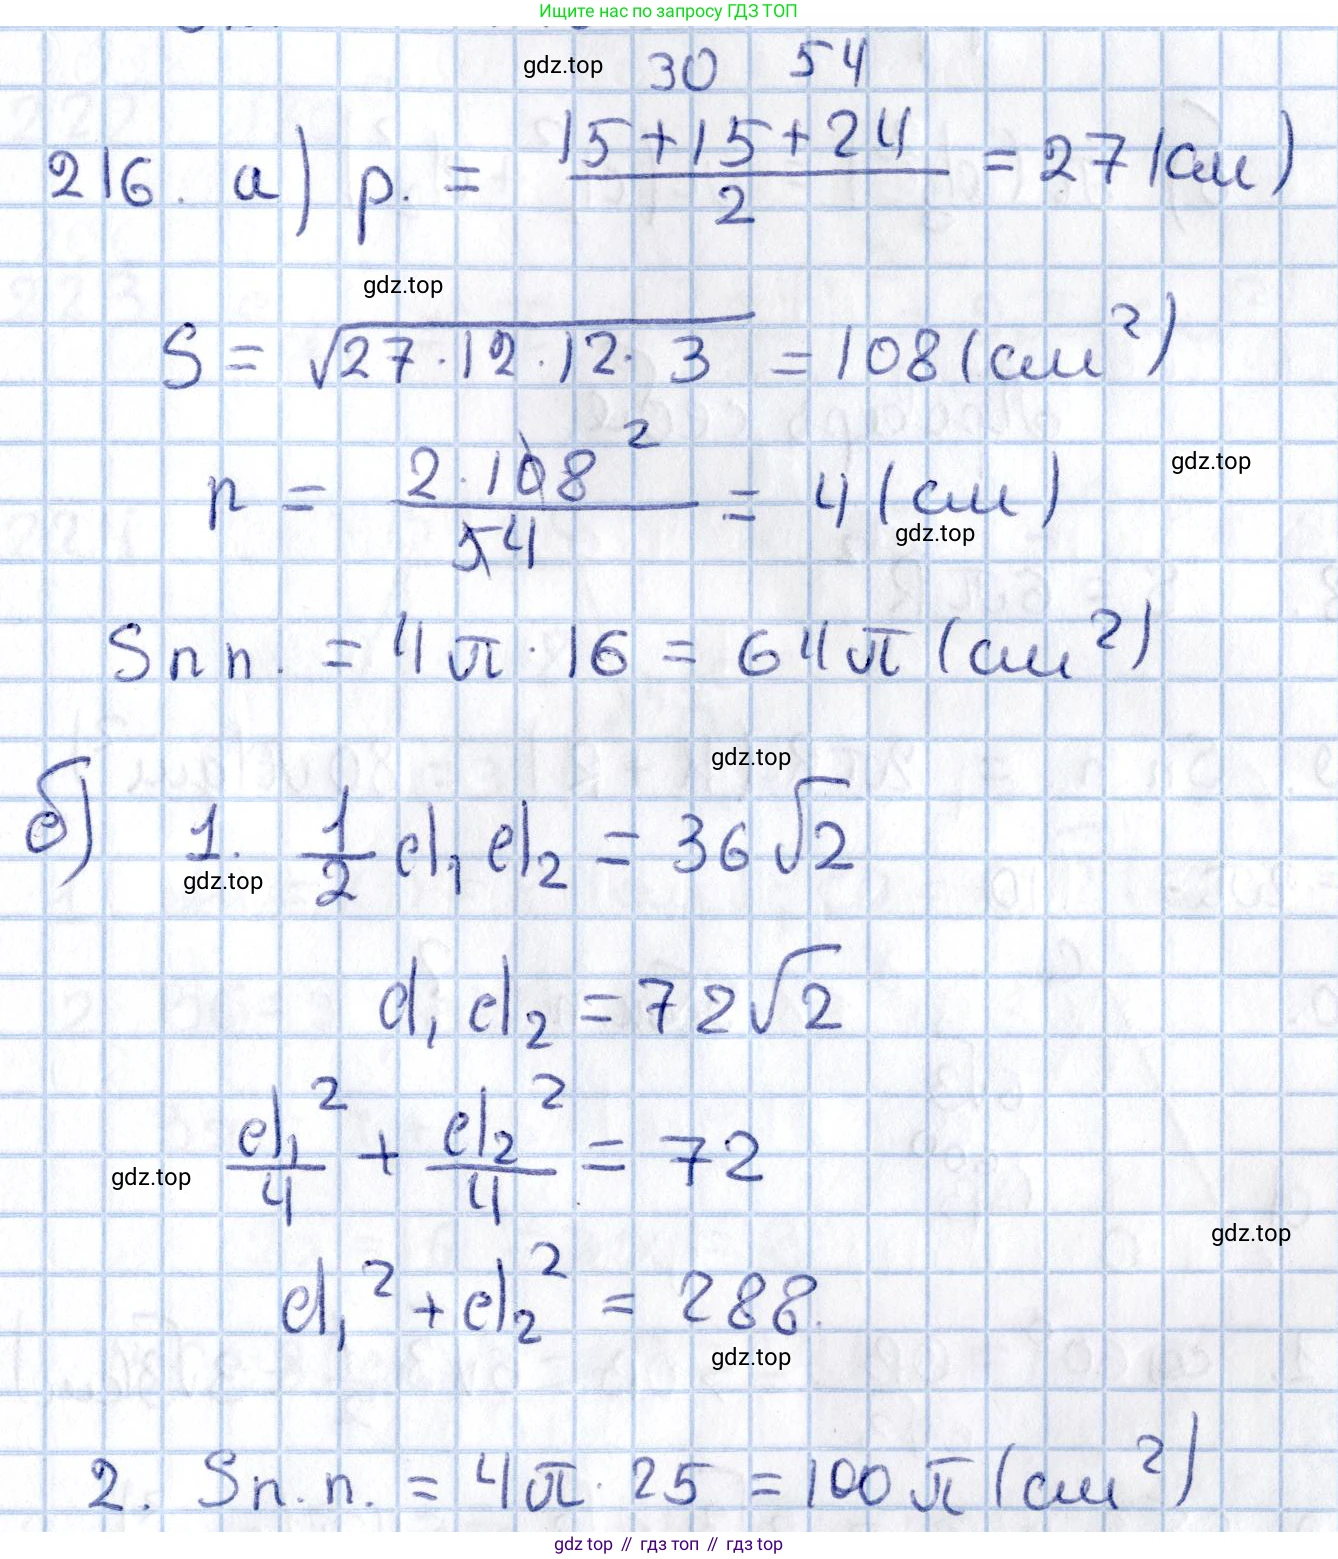 Ищите нас по запросу ГДЗ ТОП
gdz.top 30 54
216. а) p. = (15+15+24)/2 = 27 (см)
gdz.top
S = √(27·12·12·3) = 108 (см²)
r = (2·108)/54 2 = 4 (см)
gdz.top
gdz.top
Sп п. = 4π·16 = 64π (см²)
gdz.top
б) 1. 1/2 d₁ d₂ = 36√2
gdz.top
d₁ d₂ = 72√2
d₁²/4 + d₂²/4 = 72
gdz.top
gdz.top
d₁² + d₂² = 288.
gdz.top
2. Sп.п. = 4π·25 = 100π (см²)
gdz top // гдз топ // gdz top